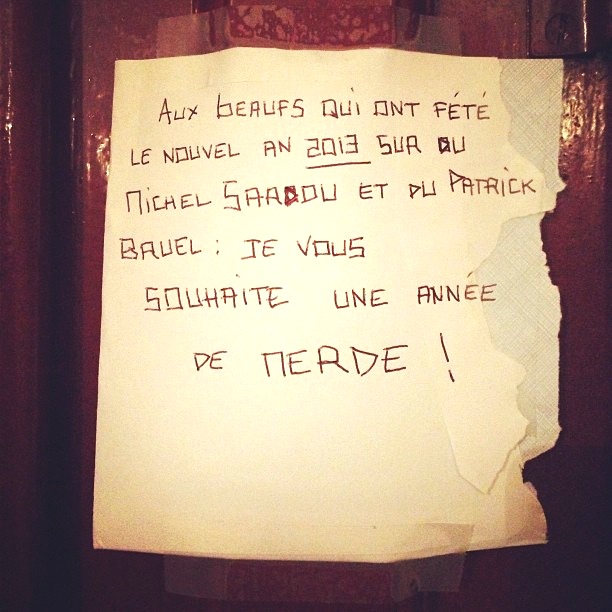 AUX BEAUFS QUI ONT FÉTÉ
LE NOUVEL AN 2013 SUR DU
MICHEL SARDOU ET DU PATRICK
BRUEL : JE VOUS
SOUHAITE UNE ANNÉE
DE MERDE !